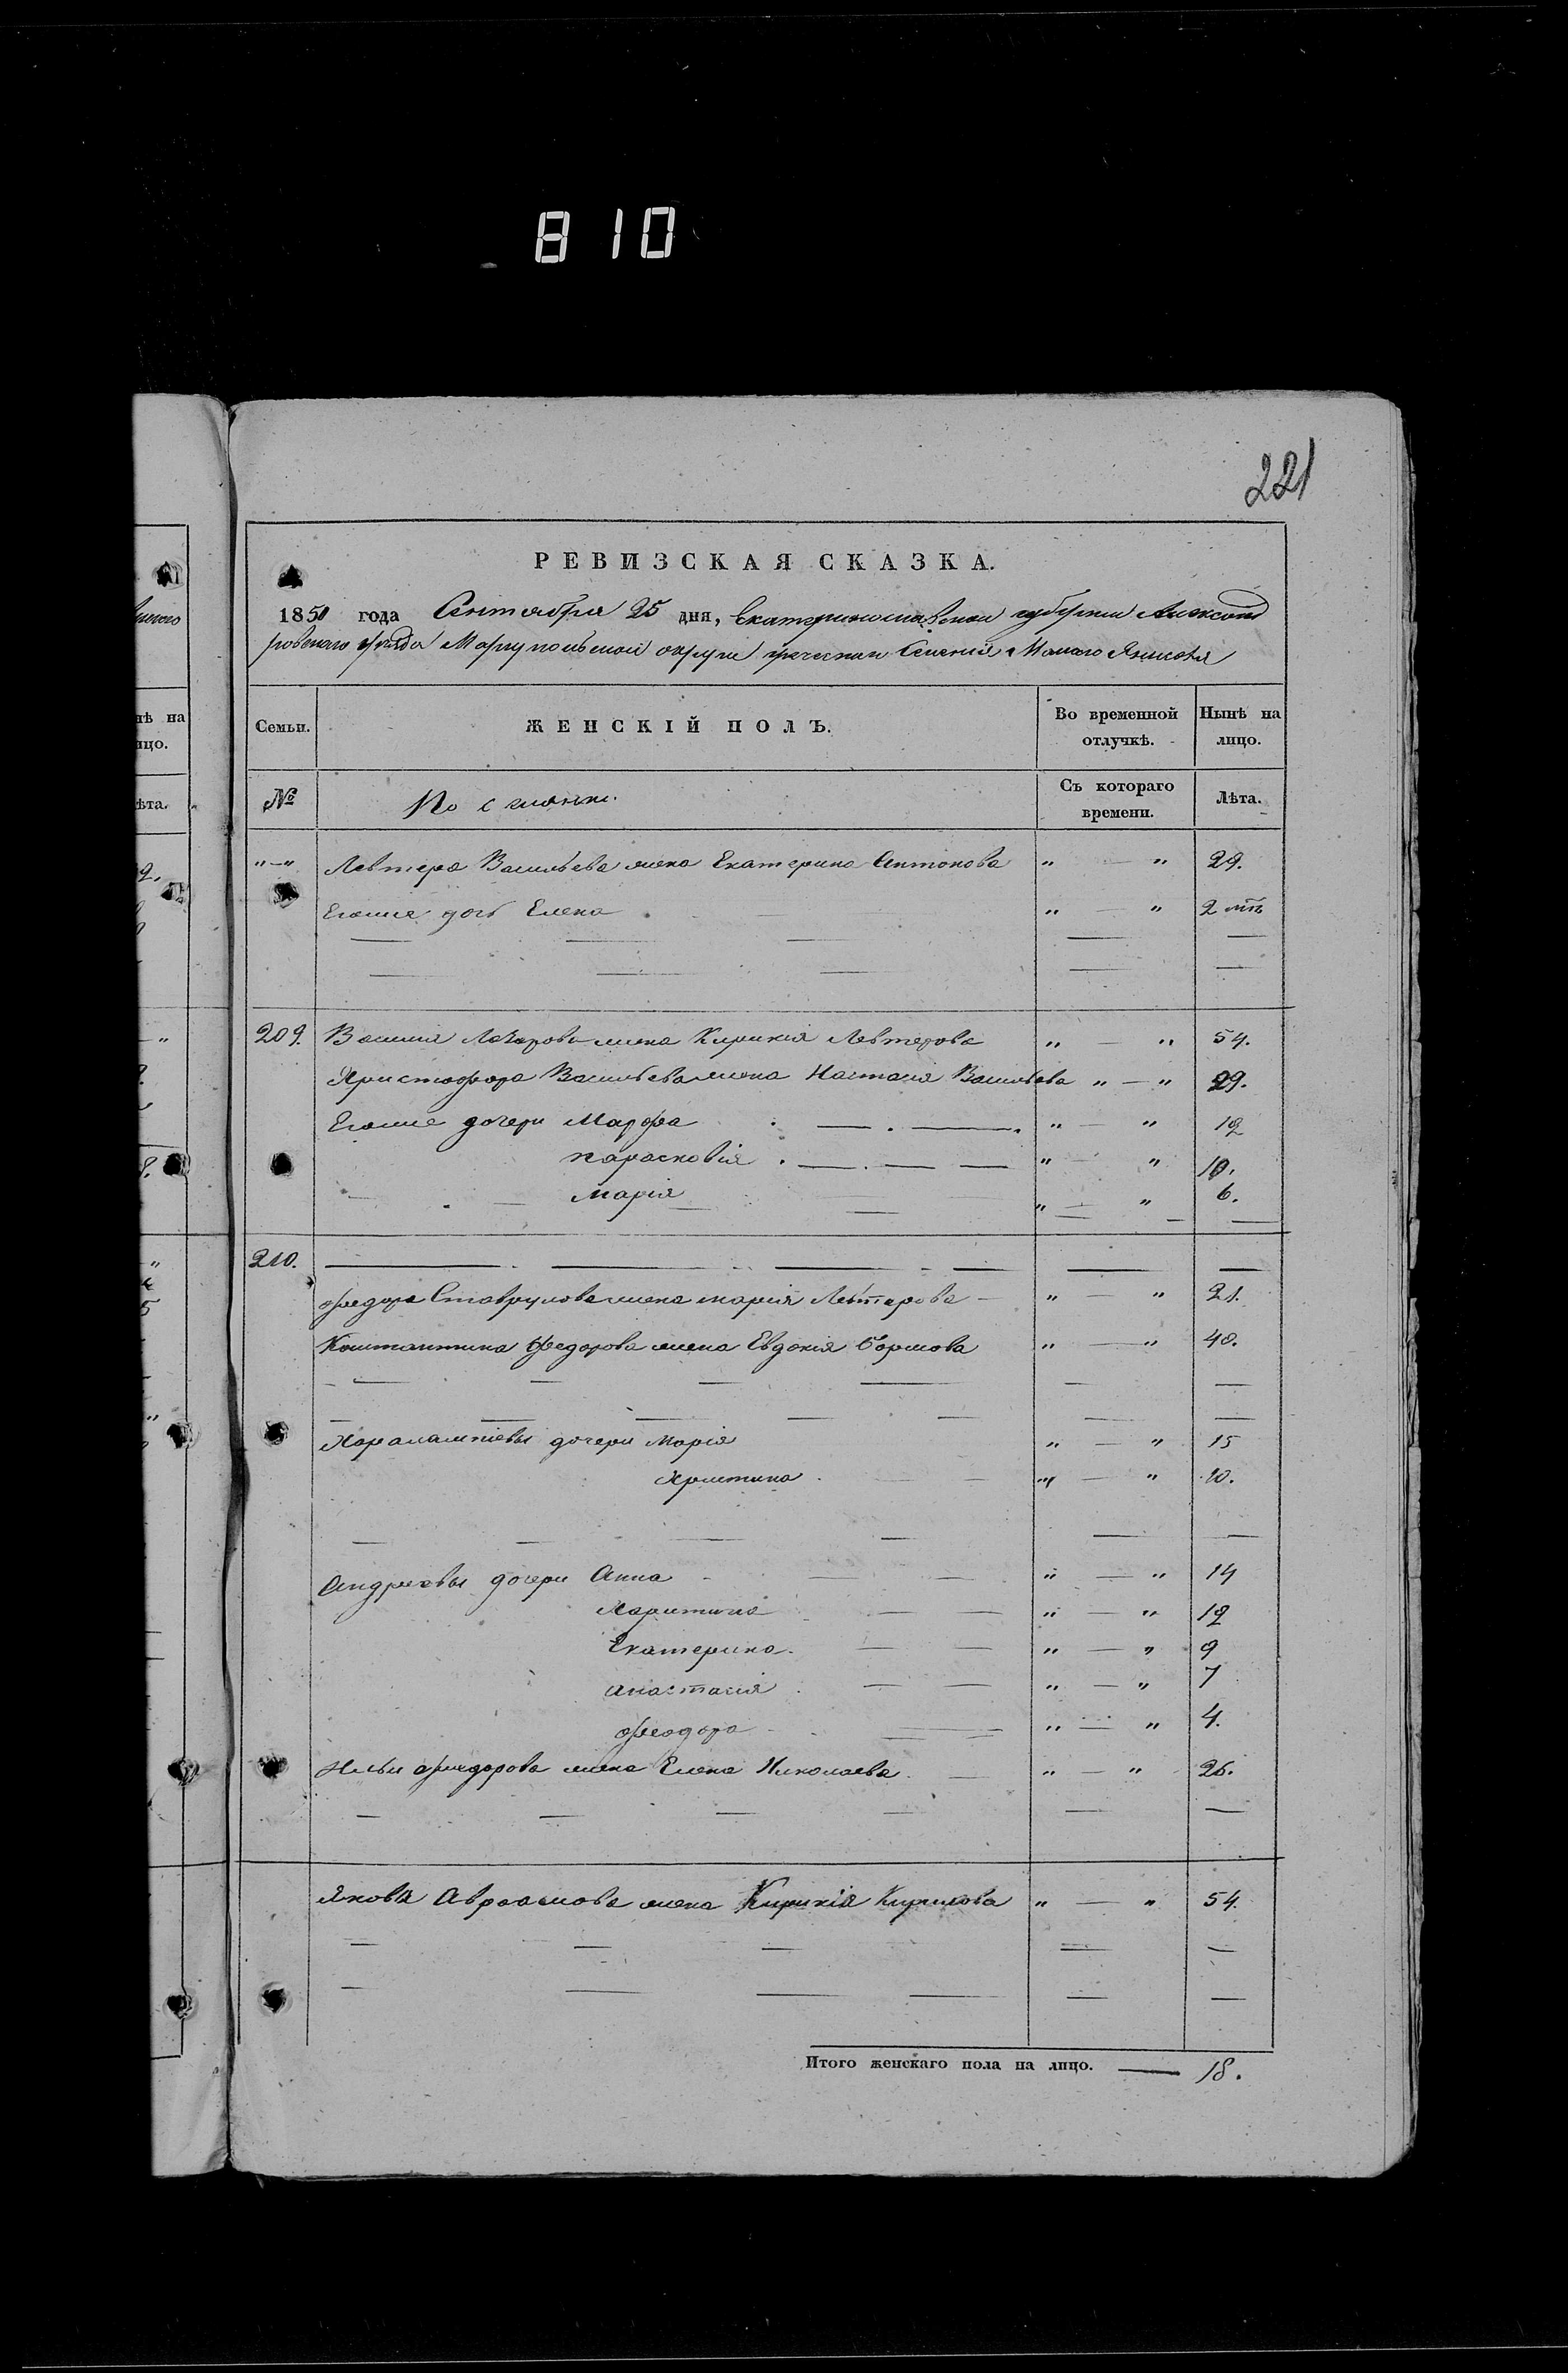 810
221
РЕВИЗСКАЯ СКАЗКА.
1850 года Сентября 25 дня, Екатеринославской губерніи Александ
ровскаго уѣзда Маріупольской округи греческаго Селенія Малаго Янисоля
Семьи. ЖЕНСКІЙ ПОЛЪ. Во временной отлучкѣ. Нынѣ на лицо.
№ Съ котораго времени. Лѣта.
"—" Левтера Васильева жена Екатерина Антонова " — " 29.
Егоже дочь Елена " — " 2
209. Василия Лазарова жена Кирикия Левтерова " — " 54.
Христофора Васильева жена Настасия Васильева " — " 29.
Егоже дочери Марфа " — " 12
парасковія " — " 10.
Марія " — " 6.
210.
Федора Ставрулова жена марія Левтерова " — " 21.
Константина Федорова жена Евдокія " — " 40.
Харалампіевы дочери Марія " — " 15
Христина " — " 10.
Андреевы дочери Анна " — " 14
Харитина " — " 12
Екатерина " — " 9
Анастасия " — " 7
Феодора " — " 4.
Ильи Федорова жена Елена Николаева " — " 26.
Якова Авраамова жена Кирикія Кирилова " — " 54.
Итого женскаго пола на лицо. — 18.
нѣ на
ицо.
ѣта.